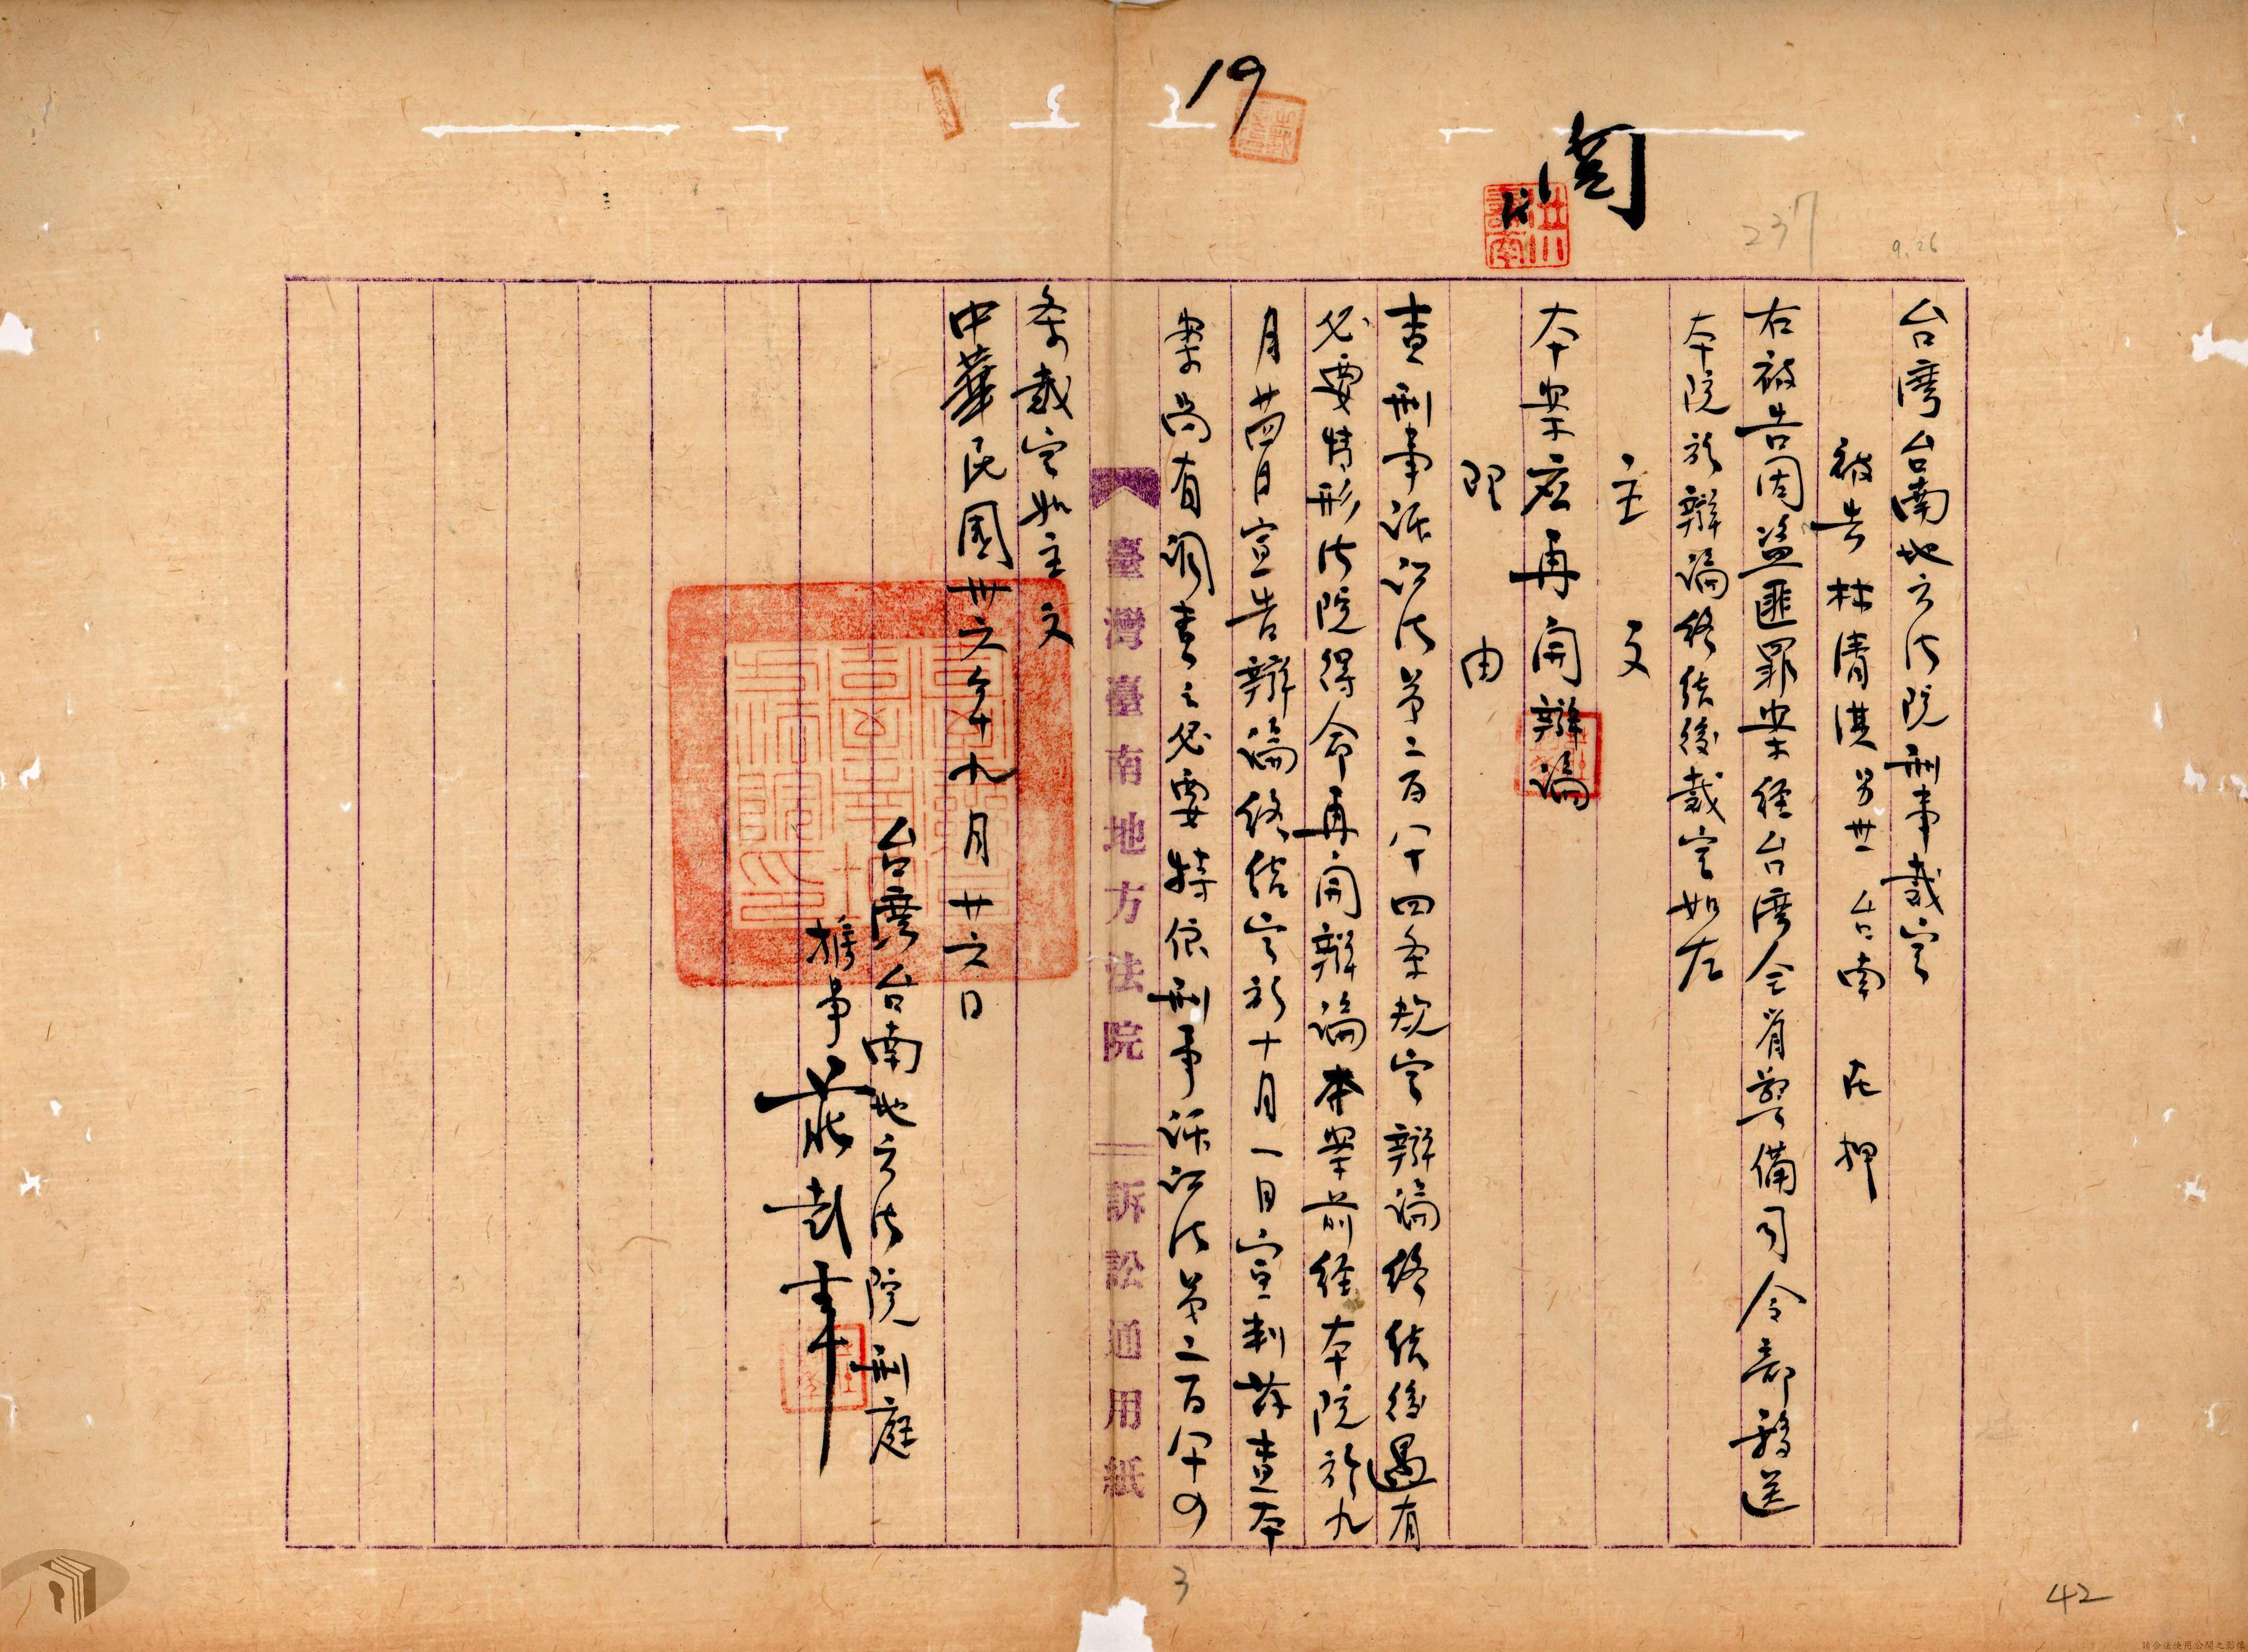 19
閱
237
9.26
台灣台南地方法院刑事裁定
被告 林清淇 男 卅 台南 在押
右被告因盜匪罪案経台湾全省警備司令部移送
本院於辯論終結後裁定如左
主文
本案应再開辯論
理由
查刑事訴訟法第二百八十四条規定辯論終結後遇有
必要情形法院得命再開辯論本案前経本院於九
月廿四日宣告辯論終結定於十月一日宣判茲查本
案尚有調查之必要特依刑事訴訟法第二百八十四
条裁定如主文
中華民國卅六年九月廿六日
台灣台南地方法院刑庭
推事
臺灣臺南地方法院 訴訟通用紙
3
42
請合法使用公開之影像